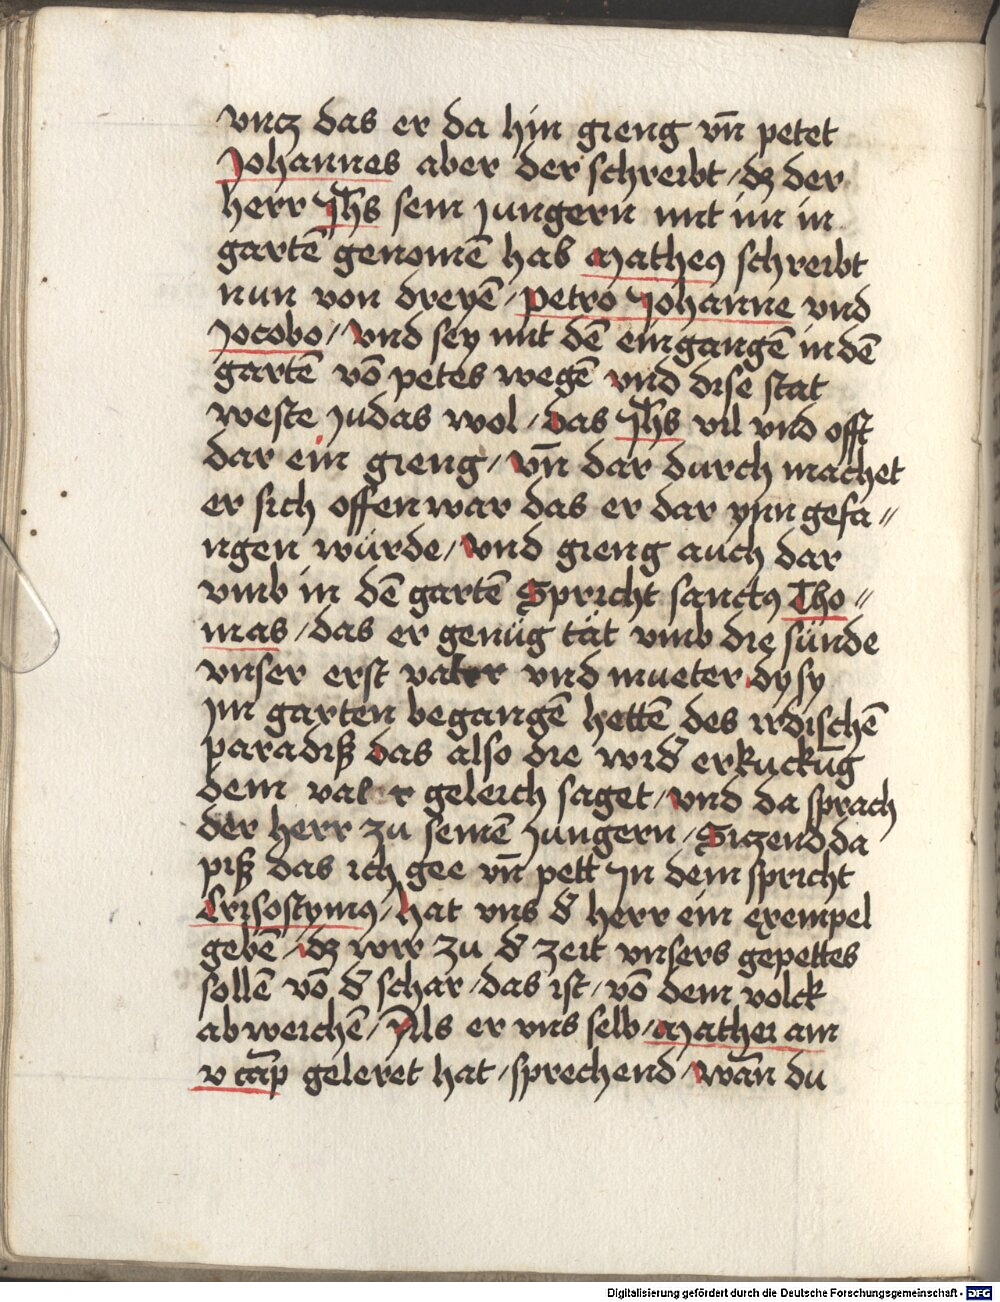 vncz das er da hin gieng vn̄ petet
Johannes aber der schreibt / dz der
herr Jh̄s sein jungern mit im in
gartē genomē hab Matheꝰ schreibt
nun von dreyē / petro Johanne vnd
Jocobo / vnd sey mit dē eingangē in dē
gartē vō petes wegē vnd dise stat
weste judas wol / das Jh̄s vil vnd offt
dar ein gieng / vn̄ dar durch machet
er sich offenwar das er dar ynn gefa〃
ngen würde / vnd gieng auch dar
vmb in dē gartē Spricht sanctꝰ Tho〃
mas / das er genüg tät vmb die sünde
vnser erst vater vnd mueter dy sy
jm garten begangē hettē des irdischē
paradiß das also die wid̄ erkuckūg
dem geleich saget / vnd da sprach
der herr zu seinē jungern / Siczend da
piß das ich gee vn̄ pett Jn dem spricht
Crisostymꝰ / hat vns d̄ herr ein exempel
gebē / dz wir zu d̄ zeit vnsers gepettes
sollē vō d̄ schar / das ist / vō dem volck
abweichē / Als er vns selb / Mathei am
v cāp geleret hat / sprechend / wān du
Digitalisierung gefördert durch die Deutsche Forschungsgemeinschaft - DFG